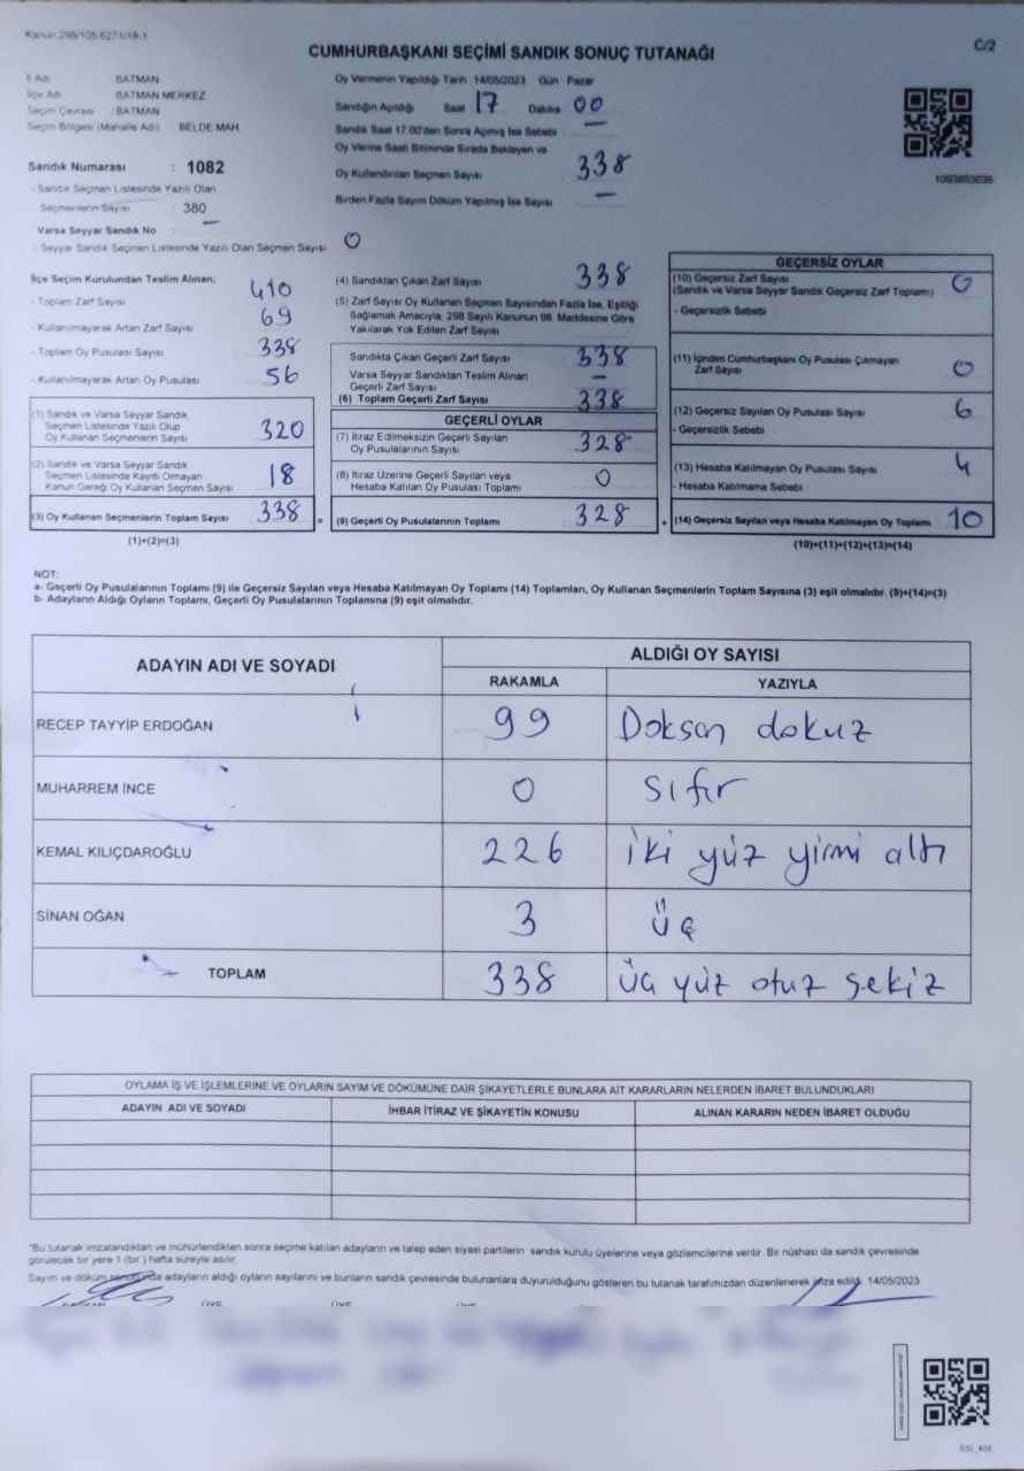 Kanun:298/105 6271/18-1
C/2
CUMHURBAŞKANI SEÇİMİ SANDIK SONUÇ TUTANAĞI
İl Adı BATMAN
İlçe Adı BATMAN MERKEZ
Seçim Çevresi : BATMAN
Seçim Bölgesi (Mahalle Adı) BELDE MAH.
Oy Vermenin Yapıldığı Tarih 14/05/2023 Gün Pazar
Sandığın Açıldığı Saat 17 Dakika 00
Sandık Saat 17.00'den Sonra Açılmış İse Sebebi —
Oy Verme Saati Bitiminde Sırada Bekleyen ve
Oy Kullandırılan Seçmen Sayısı 338
Birden Fazla Sayım Döküm Yapılmış İse Sayısı —
Sandık Numarası : 1082
- Sandık Seçmen Listesinde Yazılı Olan
Seçmenlerin Sayısı : 380
Varsa Seyyar Sandık No —
- Seyyar Sandık Seçmen Listesinde Yazılı Olan Seçmen Sayısı 0
İlçe Seçim Kurulundan Teslim Alınan;
- Toplam Zarf Sayısı 410
- Kullanılmayarak Artan Zarf Sayısı 69
- Toplam Oy Pusulası Sayısı 338
- Kullanılmayarak Artan Oy Pusulası 56
(1) Sandık ve Varsa Seyyar Sandık
Seçmen Listesinde Yazılı Olup
Oy Kullanan Seçmenlerin Sayısı 320
(2) Sandık ve Varsa Seyyar Sandık
Seçmen Listesinde Kayıtlı Olmayan
Kanun Gereği Oy Kullanan Seçmen Sayısı 18
(3) Oy Kullanan Seçmenlerin Toplam Sayısı 338
(1)+(2)=(3)
(4) Sandıktan Çıkan Zarf Sayısı 338
(5) Zarf Sayısı Oy Kullanan Seçmen Sayısından Fazla İse, Eşitliği
Sağlamak Amacıyla; 298 Sayılı Kanunun 98. Maddesine Göre
Yakılarak Yok Edilen Zarf Sayısı
Sandıkta Çıkan Geçerli Zarf Sayısı 338
Varsa Seyyar Sandıktan Teslim Alınan
Geçerli Zarf Sayısı —
(6) Toplam Geçerli Zarf Sayısı 338
GEÇERLİ OYLAR
(7) İtiraz Edilmeksizin Geçerli Sayılan
Oy Pusulalarının Sayısı 328
(8) İtiraz Üzerine Geçerli Sayılan veya
Hesaba Katılan Oy Pusulası Toplamı 0
= (9) Geçerli Oy Pusulalarının Toplamı 328
GEÇERSİZ OYLAR
(10) Geçersiz Zarf Sayısı
(Sandık ve Varsa Seyyar Sandık Geçersiz Zarf Toplamı) 0
- Geçersizlik Sebebi
(11) İçinden Cumhurbaşkanı Oy Pusulası Çıkmayan
Zarf Sayısı 0
(12) Geçersiz Sayılan Oy Pusulası Sayısı 6
- Geçersizlik Sebebi
(13) Hesaba Katılmayan Oy Pusulası Sayısı 4
- Hesaba Katılmama Sebebi
+ (14) Geçersiz Sayılan veya Hesaba Katılmayan Oy Toplamı 10
(10)+(11)+(12)+(13)=(14)
NOT:
a- Geçerli Oy Pusulalarının Toplamı (9) ile Geçersiz Sayılan veya Hesaba Katılmayan Oy Toplamı (14) Toplamları, Oy Kullanan Seçmenlerin Toplam Sayısına (3) eşit olmalıdır. (9)+(14)=(3)
b- Adayların Aldığı Oyların Toplamı, Geçerli Oy Pusulalarının Toplamına (9) eşit olmalıdır.
ADAYIN ADI VE SOYADI
ALDIĞI OY SAYISI
RAKAMLA YAZIYLA
RECEP TAYYİP ERDOĞAN 99 Doksan dokuz
MUHARREM İNCE 0 Sıfır
KEMAL KILIÇDAROĞLU 226 iki yüz yirmi altı
SİNAN OĞAN 3 üç
TOPLAM 338 üç yüz otuz sekiz
OYLAMA İŞ VE İŞLEMLERİNE VE OYLARIN SAYIM VE DÖKÜMÜNE DAİR ŞİKAYETLERLE BUNLARA AİT KARARLARIN NELERDEN İBARET BULUNDUKLARI
ADAYIN ADI VE SOYADI İHBAR İTİRAZ VE ŞİKAYETİN KONUSU ALINAN KARARIN NEDEN İBARET OLDUĞU
"Bu tutanak imzalandıktan ve mühürlendikten sonra seçime katılan adayların ve talep eden siyasi partilerin sandık kurulu üyelerine veya gözlemcilerine verilir. Bir nüshası da sandık çevresinde
görülecek bir yere 1 (bir) hafta süreyle asılır.
Sayım ve döküm sonunda adayların aldığı oyların sayılarını ve bunların sandık çevresinde bulunanlara duyurulduğunu gösteren bu tutanak tarafımızdan düzenlenerek imza edildi. 14/05/2023